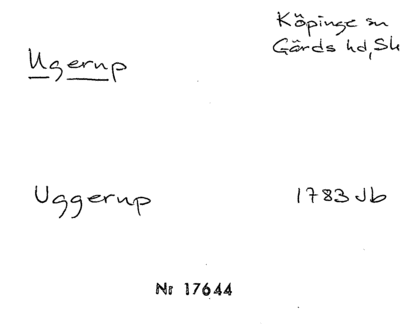 Köpinge sn
Ugerup
Gärds hd, Sk
Uggerup
1783 Jb
Nr 17644